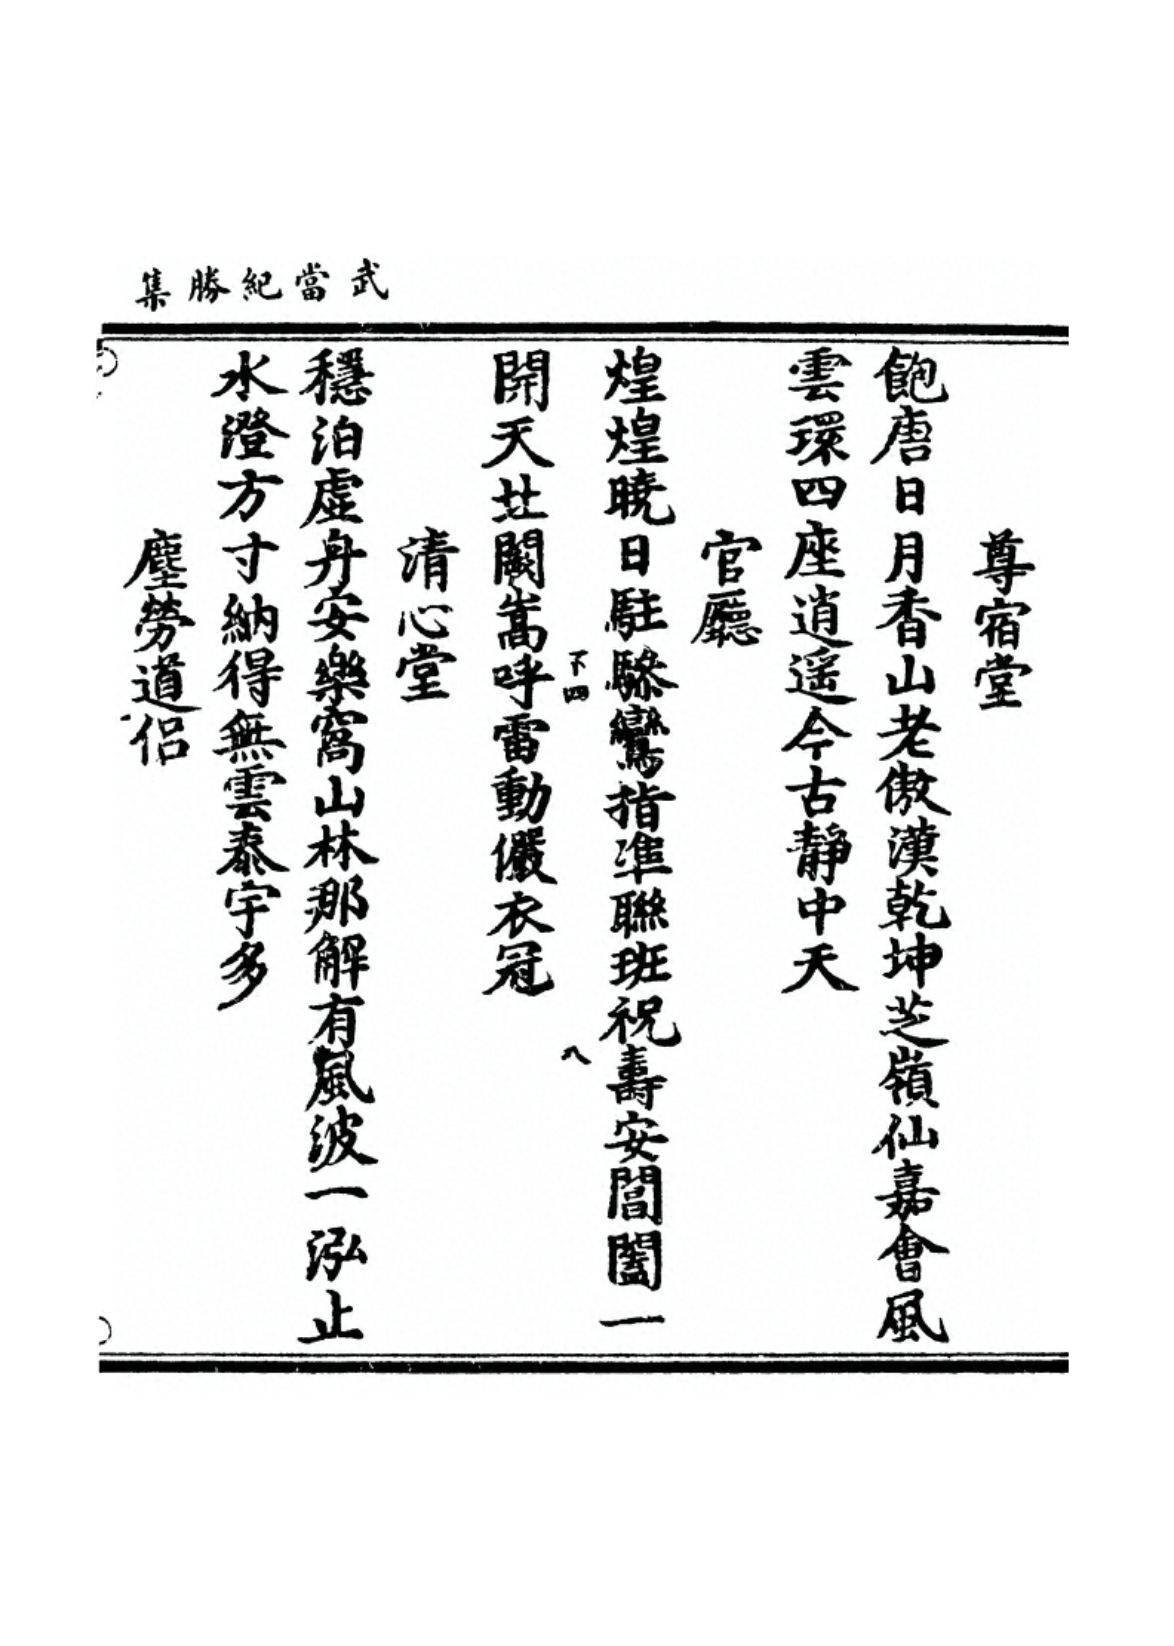 武當紀勝集
尊宿堂
飽唐日月香山老傲漢乾坤芝嶺仙嘉會風
雲環四座逍遥今古靜中天
官廳
煌煌曉日駐驂鸞指準聯班祝壽安閶闔一
下四
八
開天北闕嵩呼雷動儼衣冠
清心堂
穩泊虛舟安樂窩山林那解有風波一泓止
水澄方寸納得無雲泰宇多
塵勞道侶